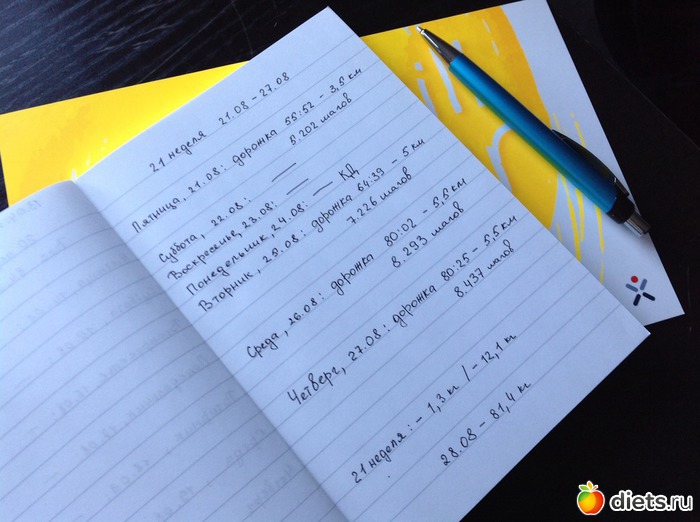 21 неделя 21.08 – 27.08
Пятница, 21.08: дорожка 55:52 – 3,5 км
5.202 шагов
Суббота, 22.08: —
Воскресенье, 23.08: —
Понедельник, 24.08: — КД
Вторник, 25.08: дорожка 64:39 – 5 км
7.226 шагов
Среда, 26.08: дорожка 80:02 – 5,5 км
8.293 шагов
Четверг, 27.08: дорожка 80:25 – 5,5 км
8.437 шагов
21 неделя: – 1,3 кг / – 12,1 кг
28.08 – 81,4 кг
diets.ru